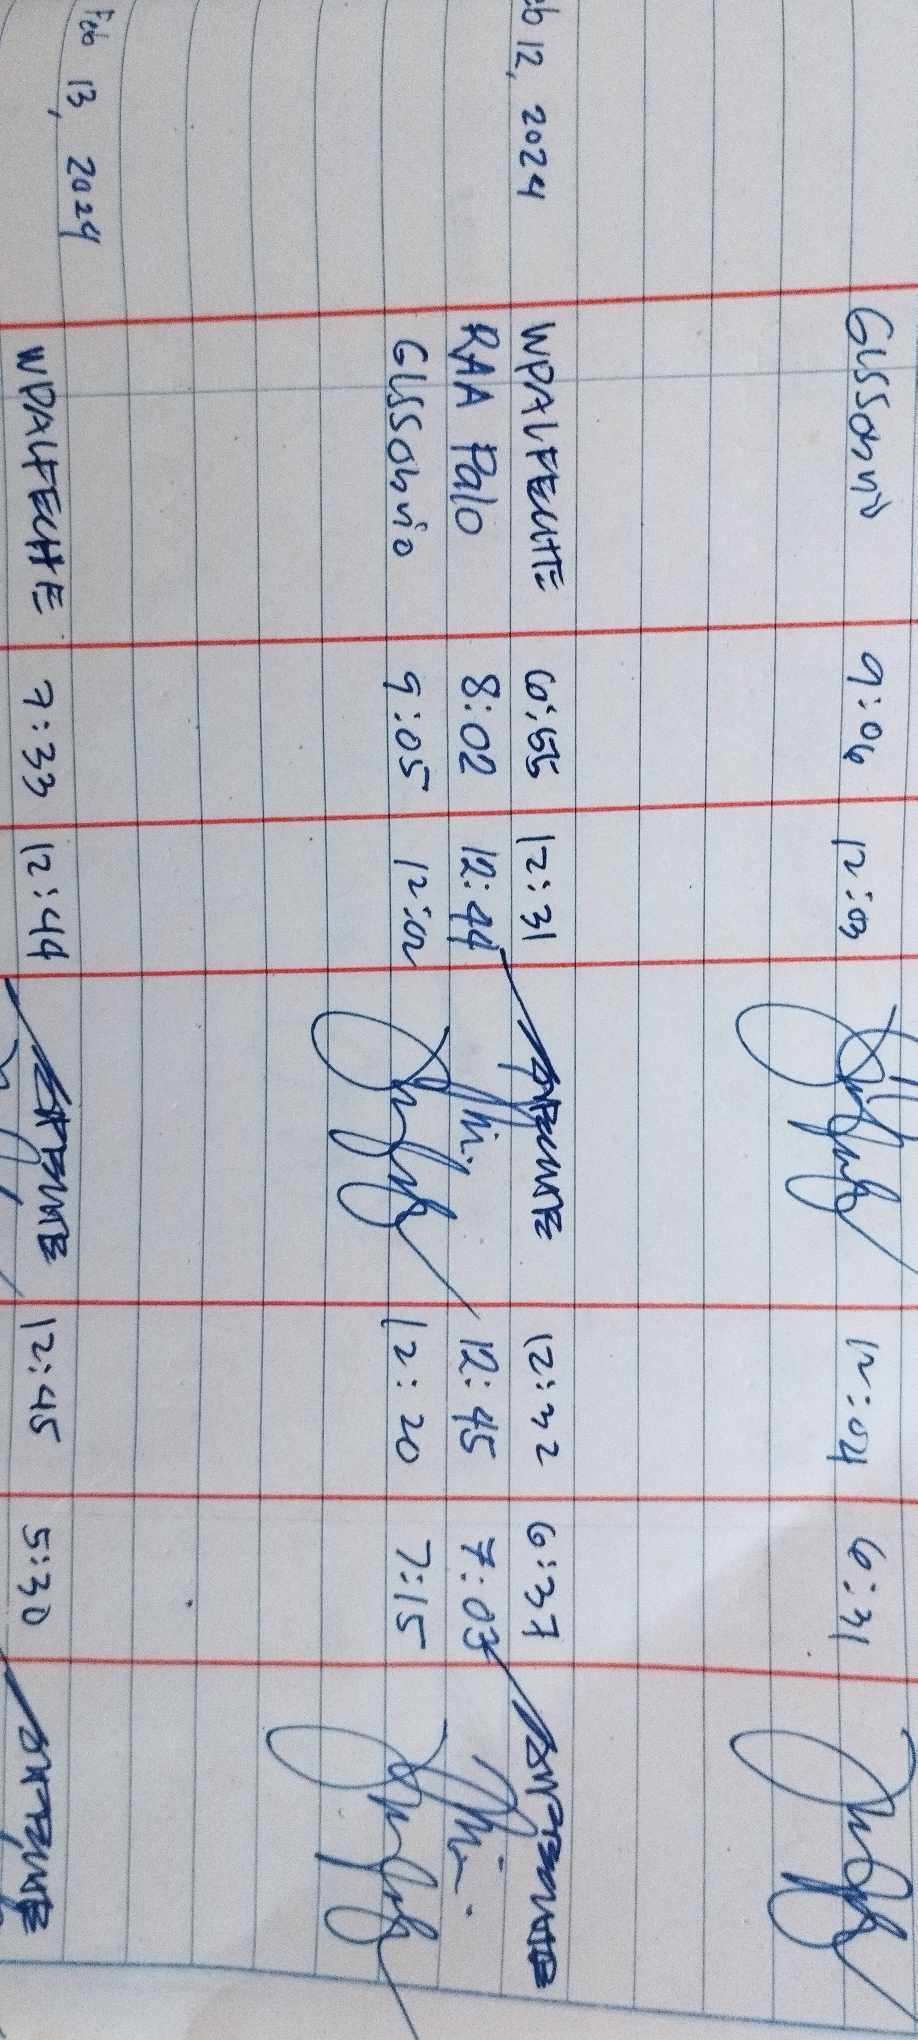 GLSSonvio 9:06 12:03 12:04 6:31
eb 12, 2024 WPALFECHE 6:55 12:31 12:32 6:37
RAA Palo 8:02 12:44 12:45 7:03
GLSSonvio 9:05 12:02 12:20 7:15
Feb 13, 2024
WPALFECHE 7:33 12:44 12:45 5:30